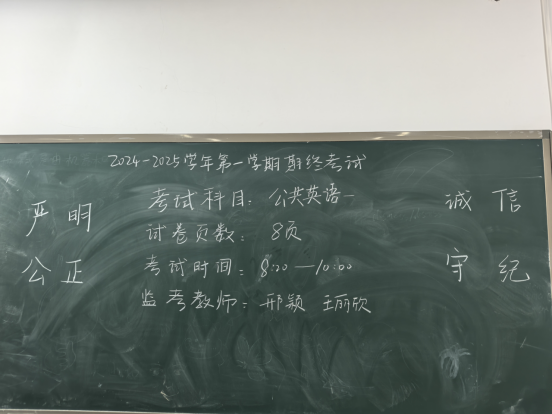 2024-2025学年第一学期期终考试
考试科目: 公共英语一
严明
诚信
试卷页数: 8页
公正
守纪
考试时间: 8:00—10:00
监考教师: 邢颖 王丽欣